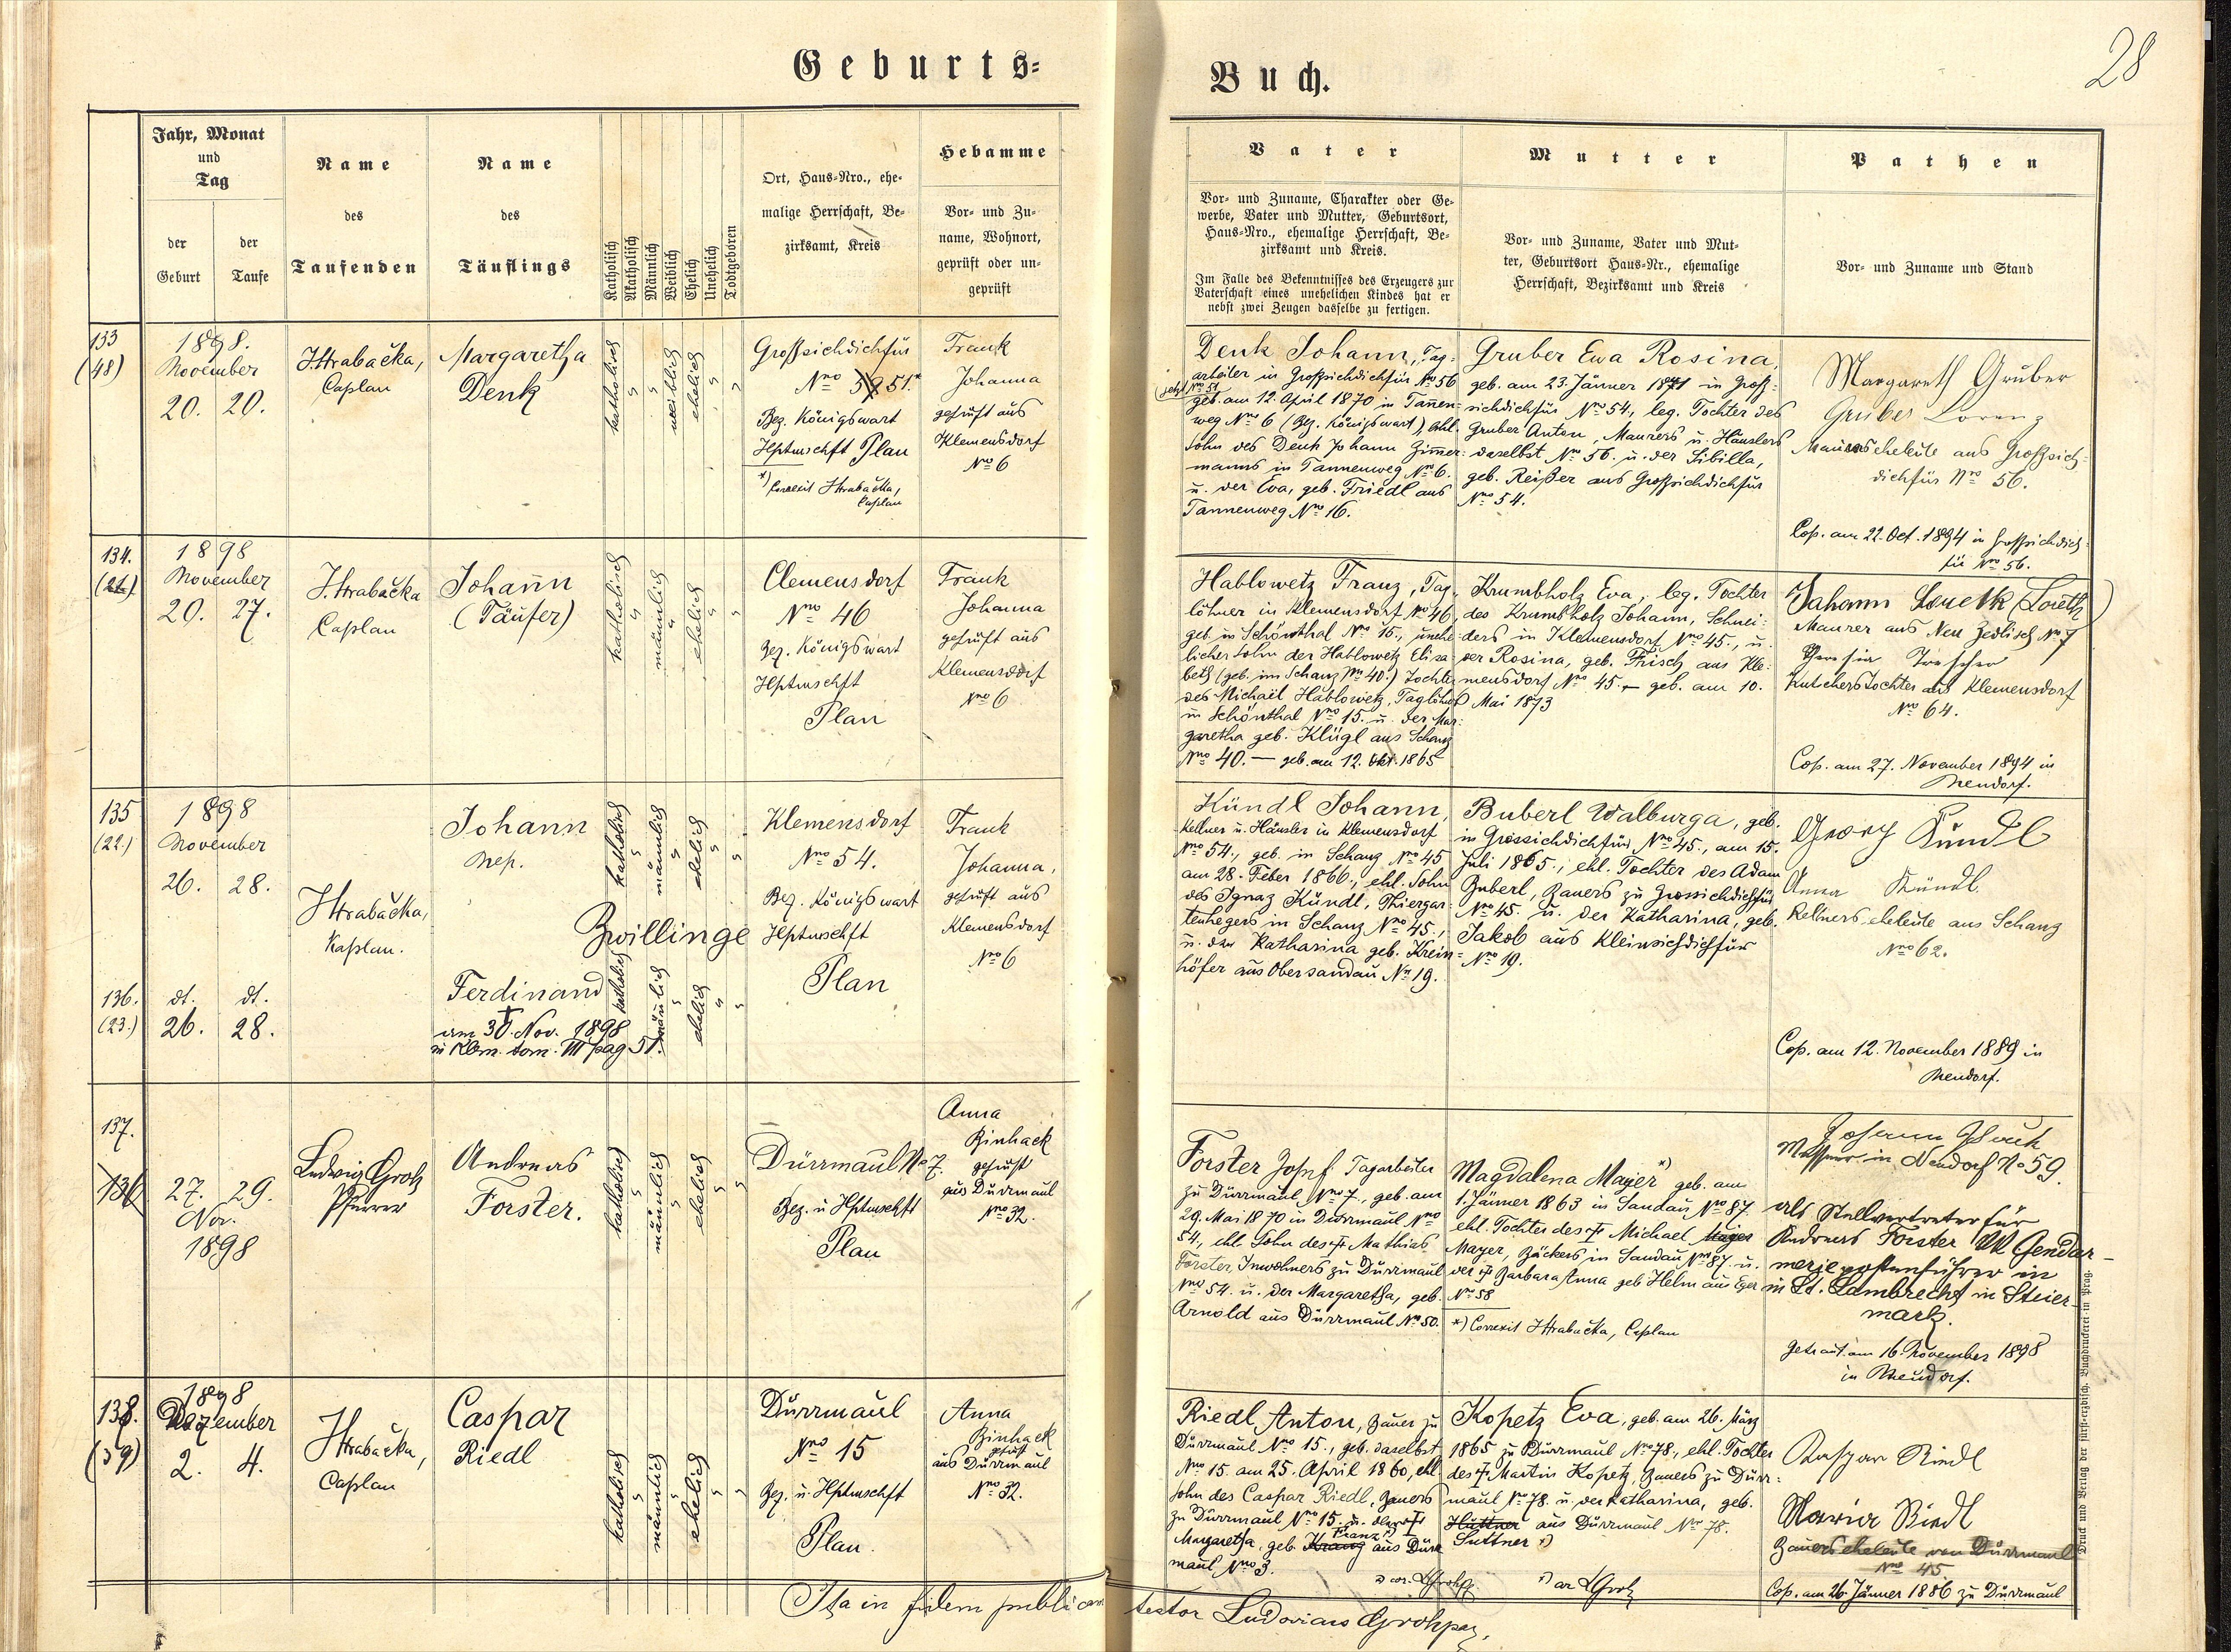 Geburts-
Buch.
28
Jahr, Monat
und
Tag
der
Geburt
der
Taufe
Name
des
Taufenden
Name
des
Täuflings
Katholisch
Akatholisch
Männlich
Weiblich
Ehelich
Unehelich
Todtgeboren
Ort, Haus-Nro., ehe-
malige Herrschaft, Be-
zirksamt, Kreis
Hebamme
Vor- und Zu-
name, Wohnort,
geprüft oder un-
geprüft
Vater
Vor- und Zuname, Charakter oder Ge-
werbe, Vater und Mutter, Geburtsort,
Haus-Nro., ehemalige Herrschaft, Be-
zirksamt und Kreis.
Im Falle des Bekenntnisses des Erzeugers zur
Vaterschaft eines unehelichen Kindes hat er
nebst zwei Zeugen dasselbe zu fertigen.
Mutter
Vor- und Zuname, Vater und Mut-
ter, Geburtsort Haus-Nr., ehemalige
Herrschaft, Bezirksamt und Kreis
Pathen
Vor- und Zuname und Stand
133
(48)
1898.
November
20. 20.
J. Hrabačka,
Caplan
Margaretha
Denk
katholisch
weiblich
ehelich
Großsichdichfür
Nro 51.*
Bez. Königswart
Hptmschft Plan
*) Correxit Hrabačka,
Caplan
Frank
Johanna
geprüft aus
Klemensdorf
Nro 6
Denk Johann, Tag-
arbeiter in Großsichdichfür No 56
jetzt No 51
geb. am 12. April 1870 in Tannen-
weg No 6 (Bez. Königswart), ehl.
Sohn des Denk Johann Zimmer-
manns in Tannenweg No 6.
u. der Eva, geb. Friedl aus
Tannenweg No 16.
Gruber Eva Rosina,
geb. am 23. Jänner 1871 in Groß-
sichdichfür No 54., leg. Tochter des
Gruber Anton, Maurers u. Häuslers
daselbst No 56. u. der Sibilla,
geb. Reißer aus Großsichdichfür
No 54.
Margareth Gruber
Gruber Lorenz
Maurerseheleute aus Großsich-
dichfür Nro 56.
Cop. am 22. Oct. 1894 in Großsichdich-
für No 56.
134.
(21.)
1898
November
20. 27.
J. Hrabačka
Caplan
Johann
(Täufer)
katholisch
männlich
ehelich
Clemensdorf
Nro 46
Bez. Königswart
Hptmschft
Plan
Frank
Johanna
geprüft aus
Klemensdorf
No 6
Hablowetz Franz, Tag-
löhner in Klemensdorf No 46,
geb. in Schönthal No 15., unehe-
licher Sohn der Hablowetz Elisa-
beth (geb. in Schanz No 40.) Tochter
des Michail Hablowetz, Taglöhners
in Schönthal No 15. u. der Mar-
garetha geb. Klügl aus Schanz
No 40. — geb. am 12. Okt. 1865
Krumbholz Eva, leg. Tochter
des Krumbholz Johann, Schnei-
ders in Klemensdorf No 45., u.
der Rosina, geb. Frisch aus Kle-
mensdorf No 45. — geb. am 10.
Mai 1873
Johann (Loreth)
Maurer aus Neu Zedlisch No 7
Theresia Trescher
Kutscherstochter aus Klemensdorf
No 64.
Cop. am 27. November 1894 in
Neudorf.
135
(22.)
1898
November
26. 28.
Hrabačka,
Kaplan.
Johann
Nep.
katholisch
männlich
ehelich
Zwillinge
Klemensdorf
No 54.
Bez. Königswart
Hptmschft
Plan
Frank
Johanna,
geprüft aus
Klemensdorf
No 6
Kündl Johann,
Kellner u. Häusler in Klemensdorf
No 54., geb. in Schanz No 45
am 28. Feber 1866., ehl. Sohn
des Ignaz Kündl, Thiergar-
tenhegers in Schanz No 45.,
u. der Katharina geb. Krein-
höfer aus Obersandau No 19.
Buberl Walburga, geb.
in Grossichdichfür No 45., am 15.
Juli 1865., ehl. Tochter des Adam
Buberl, Bauers zu Grossichdichfür
No 45. u. der Katharina, geb.
Jakob aus Kleinsichdichfür
No 19.
Georg Kündl
Anna Kündl.
Kellnerseheleute aus Schanz
No 62.
Cop. am 12. November 1889 in
Neudorf.
136.
(23.)
dt. dt.
26. 28.
Ferdinand
†
am 30. Nov. 1898
in Klem. tom. III pag 51.
katholisch
männlich
ehelich
137.
136
27. 29.
Nov.
1898
Ludwig Groh
Pfarrer
Andreas
Forster.
katholisch
männlich
ehelich
Dürrmaul No 7.
Bez. u Hptmschft
Plan
Anna
Binhack
geprüft
aus Dürrmaul
No 32.
Forster Josef Tagarbeiter
zu Dürrmaul No 7., geb. am
29. Mai 1870 in Dürrmaul No
54., ehl. Sohn des † Mathias
Forster, Inwohners zu Dürrmaul
No 54. u. der Margaretha, geb.
Arnold aus Dürrmaul No 50.
Magdalena Mayer *) geb. am
1. Jänner 1863 in Sandau No 87.
ehl. Tochter des † Michael
Mayer, Bäckers in Sandau No 87. u.
der † Barbara Anna geb Helm aus Eger
No 58
*) Correxit Hrabačka, Caplan
Johann
Messner in Neudorf No 59.
als Stellvertreter für
Andreas Forster KK Gendar-
meriepostenführer in
in St. Lambrecht in Steier-
mark.
Getraut am 16. November 1898
in Neudorf.
138.
(39)
1898
Dezember
2. 4.
Hrabačka,
Caplan
Caspar
Riedl
katholisch
männlich
ehelich
Dürrmaul
No 15
Bez. u. Hptmschft
Plan.
Anna
Binhack
geprüft
aus Dürrmaul
No 32.
Riedl Anton, Bauer zu
Dürrmaul No 15., geb. daselbst
No 15. am 25. April 1860, ehl
Sohn des Caspar Riedl, Bauers
zu Dürrmaul No 15. u. der †
Margaretha, geb. Kranz Franz *) aus Dürr
maul No 3.
Kopetz Eva, geb. am 26. März
1865 zu Dürrmaul No 78., ehl. Tochter
des † Martin Kopetz, Bauers zu Dürr-
maul No 78. u. der Katharina, geb.
Hüttner aus Dürrmaul No 78.
Suttner *)
Kaspar Riedl
Maria Riedl
Bauerseheleute von Dürrmaul
No 45
Cop. am 26. Jänner 1886 zu Dürrmaul
Ita in fidem publicam testor Ludovicus Groh
Druck und Verlag der fürst-erzbisch. Buchdruckerei in Prag.